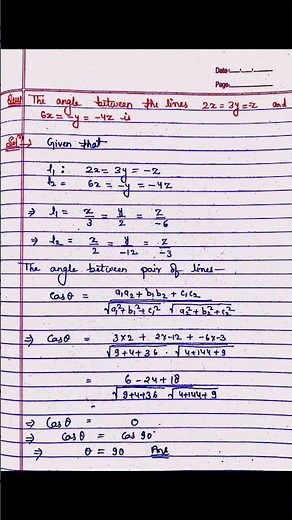 Date:
Page:
Que) The angle between the lines 2x = 3y = -z and
6x = -y = -4z is
Solⁿ) Given that
l₁ : 2x = 3y = -z
l₂ = 6x = -y = -4z
⇒ l₁ = x/3 = y/2 = z/-6
⇒ l₂ = x/2 = y/-12 = z/-3
The angle between pair of lines—
Cosθ = a₁a₂ + b₁b₂ + c₁c₂ / √a₁² + b₁² + c₁² √a₂² + b₂² + c₂²
⇒ Cosθ = 3x2 + 2x-12 + -6x-3 / √9+4+36 . √4+144+9
= 6 - 24 + 18 / √9+4+36 √4+144+9
⇒ Cosθ = 0
⇒ Cosθ = Cos 90°
⇒ θ = 90 Ans